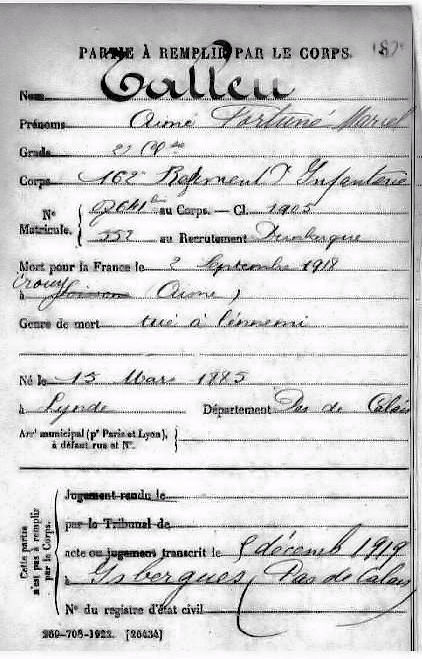 PARTIE À REMPLIR PAR LE CORPS.
Nom Calleu
Prénoms Aimé Fortuné Marcel
Grade 2e Cl
Corps 162e Regiment d'Infanterie
N° Matricule. { au Corps. — Cl. 1905
552 au Recrutement Dunkerque
Mort pour la France le 2 Septembre 1918
Crouy
à Soissons (Aisne)
Genre de mort tué à l'ennemi
Né le 15 Mars 1885
à Lynde Département Pas de Calais
Arrt municipal (pr Paris et Lyon), à défaut rue et N°.
Cette partie n'est pas à remplir par le Corps.
Jugement rendu le
par le Tribunal de
acte ou jugement transcrit le 5 décemb 1919
à Isbergues (Pas de Calais
N° du registre d'état civil
259-708-1922. [26434]